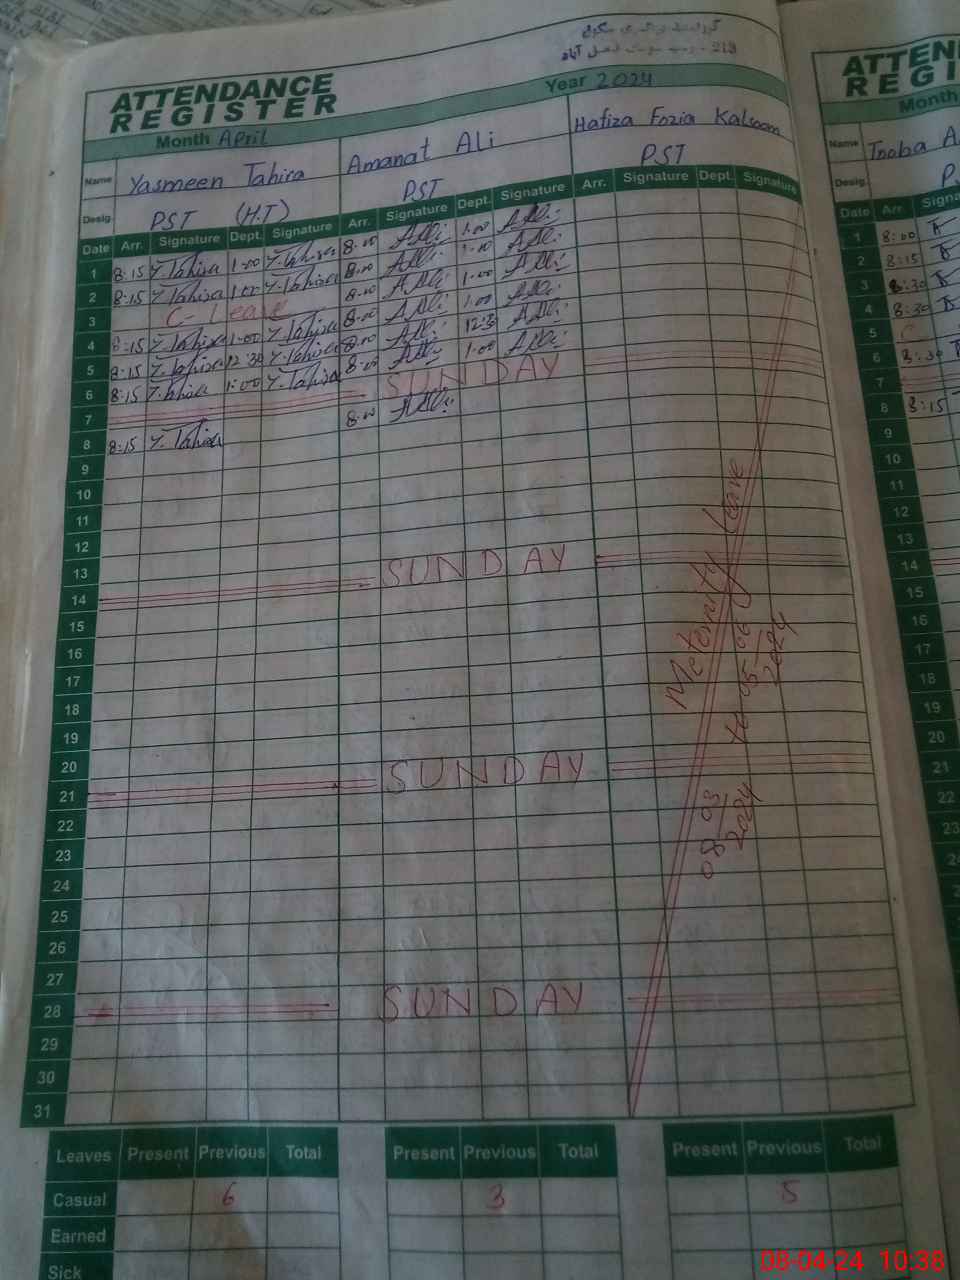 گورنمنٹ پرائمری سکول
213
فیصل آباد
ATTENDANCE
REGISTER
Year 2024
Month April
Name Yasmeen Tahira Amanat Ali Hafiza Fozia Kalsoom
Desig. PST (H.T) PST PST
Date Arr. Signature Dept. Signature Arr. Signature Dept. Signature Arr. Signature Dept. Signature
1 8:15 Y.Tahira 1:00 Y.Tahira 8:00 A Ali 1:00 A Ali
2 8:15 Y.Tahira 1:00 Y.Tahira 8:00 A Ali 1:00 A Ali
3 C-Leave 8:00 A Ali 1:00 A Ali
4 8:15 Y.Tahira 1:00 Y.Tahira 8:00 A Ali 1:00 A Ali
5 8:15 Y.Tahira 12:30 Y.Tahira 8:00 A Ali 12:30 A Ali
6 8:15 Y.Tahira 1:00 Y.Tahira 8:00 A Ali 1:00 A Ali
7 SUNDAY
8 8:15 Y.Tahira 8:00 A Ali
9
10
11
12
13
14 SUNDAY
15
16
17
18
19
20
21 SUNDAY
22
23
24
25
26
27
28 SUNDAY
29
30
31
Meternity Leave
08-03-2024 to 05-06-2024
Leaves Present Previous Total Present Previous Total Present Previous Total
Casual 6 3 5
Earned
Sick
ATTEN
REGI
Month
Name Tooba A
Desig.
Date Arr Signa
1 8:00
2 8:15
3 8:30
4 8:30
5 C
6 8:30
7
8 8:15
9
10
11
12
13
14
15
16
17
18
19
20
21
22
23
08-04-24 10:38